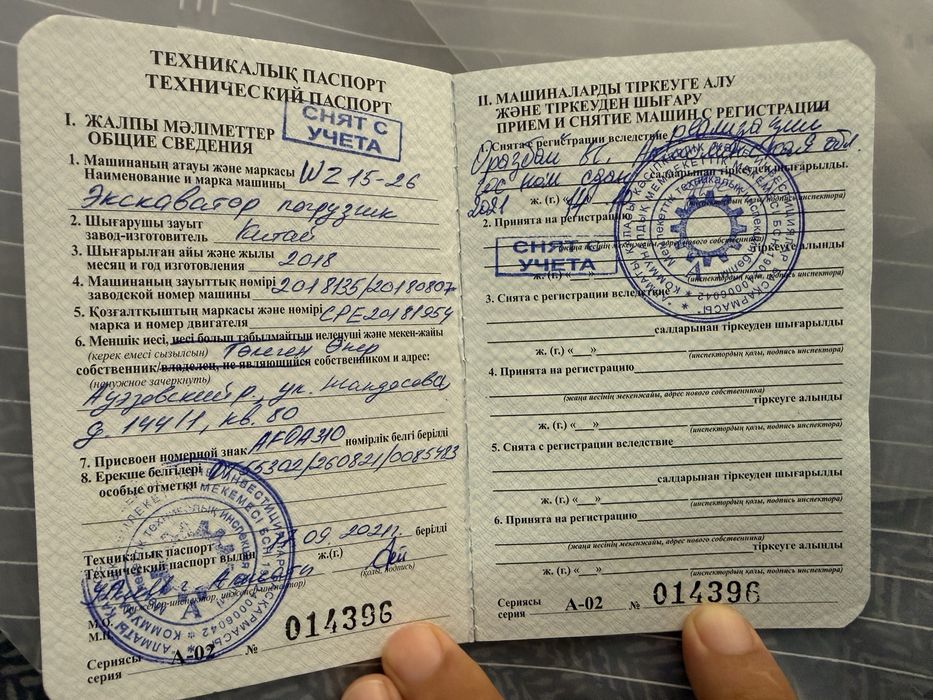 ТЕХНИКАЛЫҚ ПАСПОРТ
ТЕХНИЧЕСКИЙ ПАСПОРТ
I. ЖАЛПЫ МӘЛІМЕТТЕР
ОБЩИЕ СВЕДЕНИЯ
СНЯТ С
УЧЕТА
1. Машинаның атауы және маркасы
Наименование и марка машины WZ 15-26
Экскаватор погрузчик
2. Шығарушы зауыт
завод-изготовитель Китай
3. Шығарылған айы және жылы
месяц и год изготовления 2018
4. Машинаның зауыттық нөмірі
заводской номер машины 2018135/20180807
5. Қозғалтқыштың маркасы және нөмірі
марка и номер двигателя CPE20181954
6. Меншік иесі, иесі болып табылмайтын иеленуші және мекен-жайы
(керек емесі сызылсын) Төлеген Өнер
собственник/владелец, не являющийся собственником и адрес:
(ненужное зачеркнуть)
Ауэзовский р., ул. Жандосова,
д. 144/1, кв. 80
7. Присвоен номерной знак AFDA310 нөмірлік белгі берілді
8. Ерекше белгілері
особые отметки /260821/0085483
Техникалық паспорт 09. 2021г. берілді
Технический паспорт выдан ж.(г.)
(қолы, подпись)
М.О.
М.П.
Сериясы
серия А-02 № 014396
II. МАШИНАЛАРДЫ ТІРКЕУГЕ АЛУ
ЖӘНЕ ТІРКЕУДЕН ШЫҒАРУ
ПРИЕМ И СНЯТИЕ МАШИН С РЕГИСТРАЦИИ
1. Снята с регистрации вследствие реализации
обл.
салдарынан тіркеуден шығарылды.
Гос ном сдан
2021 ж. (г.)
2. Принята на регистрацию
СНЯТ
УЧЕТА
(жаңа иесінің мекенжайы, адрес нового собственника)
тіркеуге алынды
ж. (г.) «__»
(инспектордың қолы, подпись инспектора)
3. Снята с регистрации вследствие
салдарынан тіркеуден шығарылды
ж. (г.) «__»
(инспектордың қолы, подпись инспектора)
4. Принята на регистрацию
(жаңа иесінің мекенжайы, адрес нового собственника)
тіркеуге алынды
ж. (г.) «__»
(инспектордың қолы, подпись инспектора)
5. Снята с регистрации вследствие
салдарынан тіркеуден шығарылды
ж. (г.) «__»
(инспектордың қолы, подпись инспектора)
6. Принята на регистрацию
(жаңа иесінің мекенжайы, адрес нового собственника)
тіркеуге алынды
ж. (г.) «__»
(инспектордың қолы, подпись инспектора)
Сериясы
серия А-02 № 014396